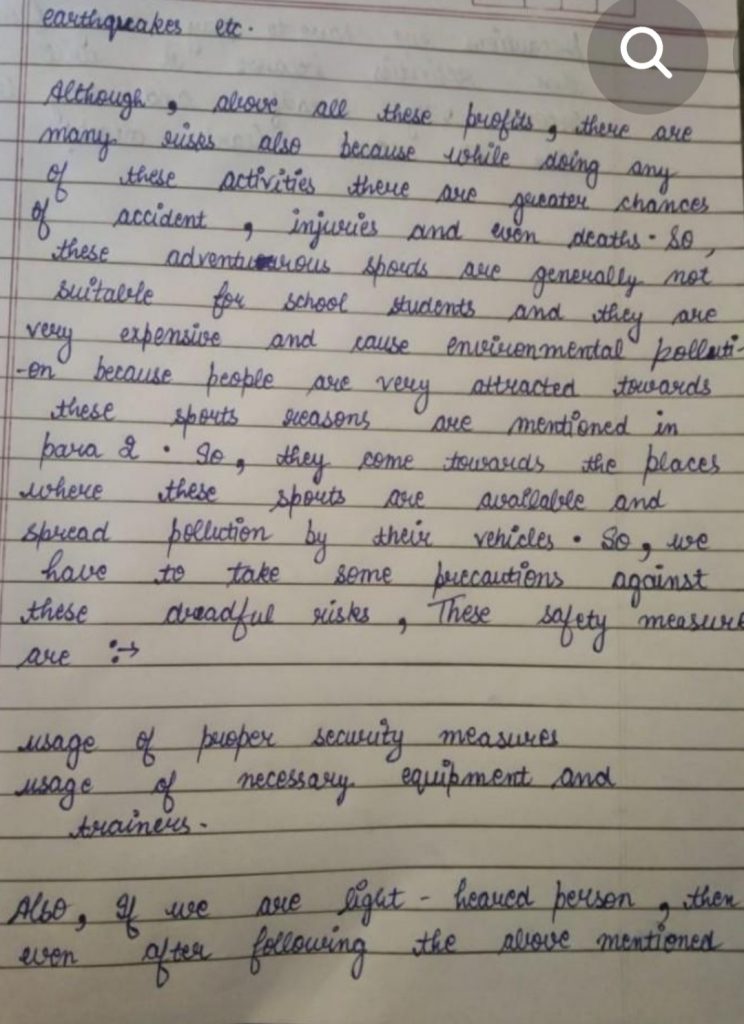 earthqueakes etc.
Although, above all these profits, there are
many rises also because while doing any
of these activities there are greater chances
of accident, injuries and even deaths. So,
these adventurous sports are generally not
suitable for school students and they are
very expensive and cause environmental polluti-
-on because people are very attracted towards
these sports reasons are mentioned in
para 2. So, they come towards the places
where these sports are available and
spread pollution by their vehicles. So, we
have to take some precautions against
these dreadful risks, These safety measure
are :→
usage of proper security measures
usage of necessary equipment and
trainers.
Also, If we are light - heared person, then
even after following the above mentioned